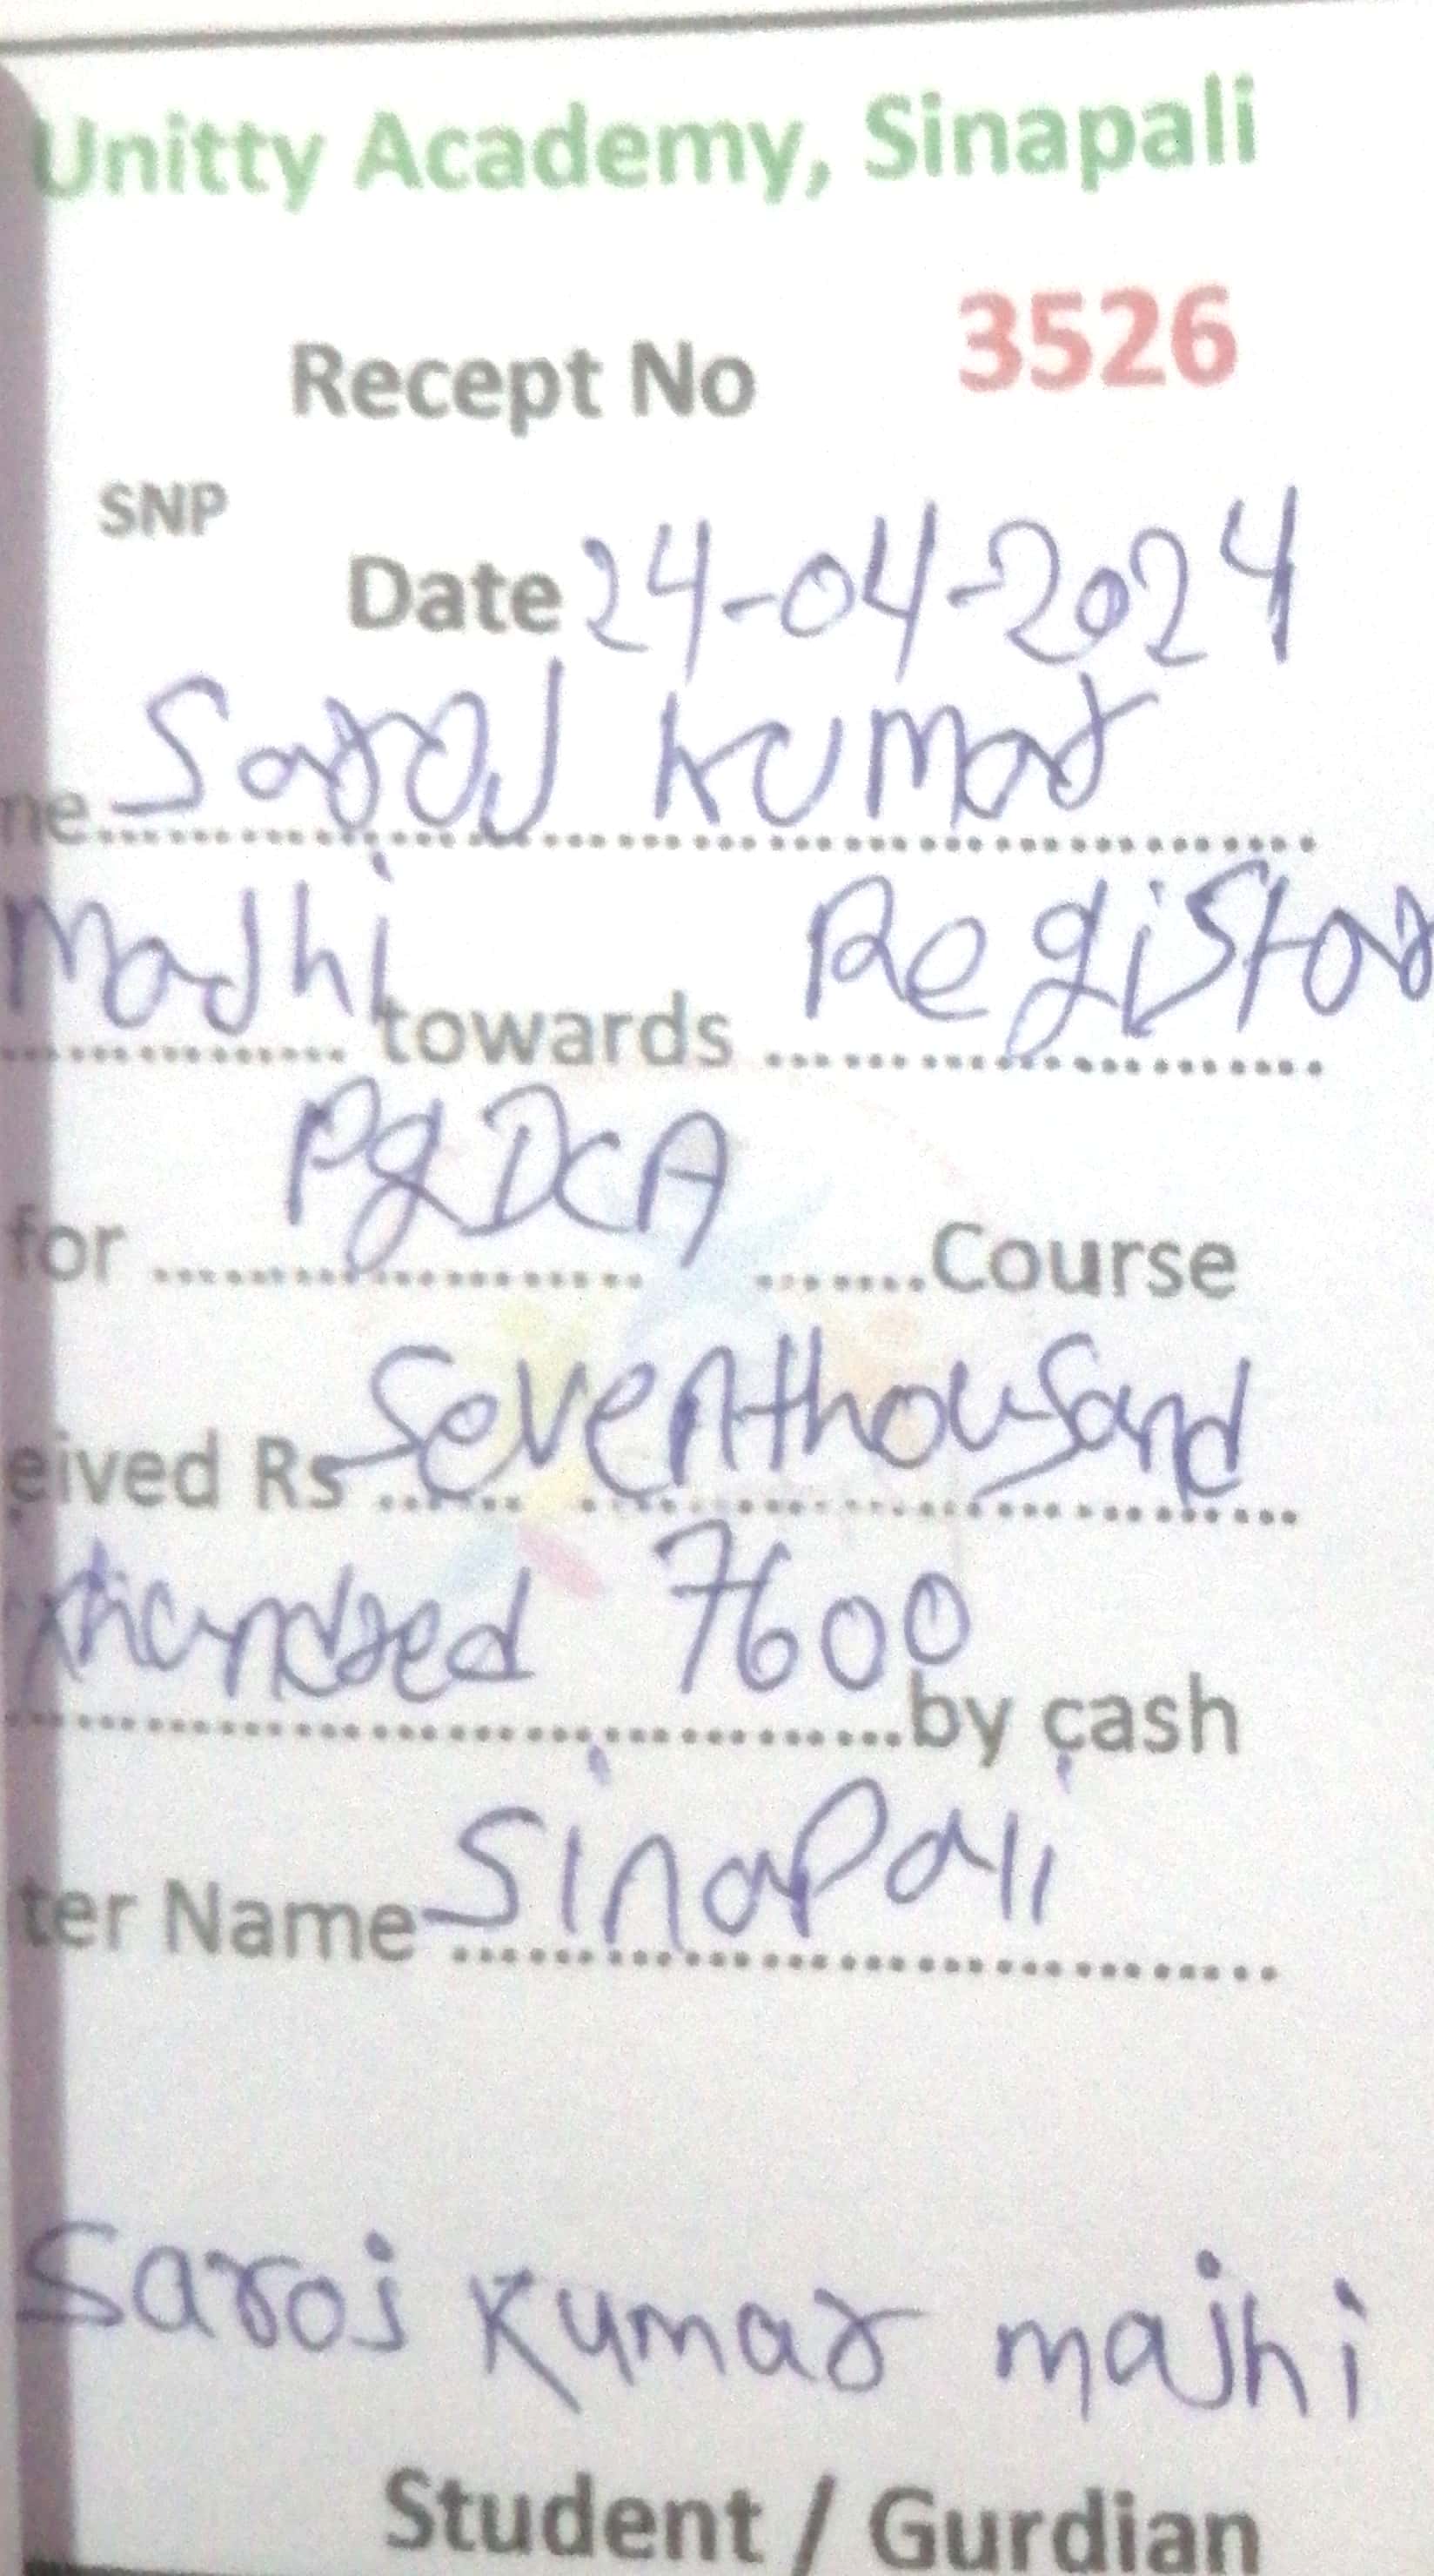 Unitty Academy, Sinapali
Recept No 3526
SNP
Date 24-04-2024
ne Saroj Kumar
Majhi towards Registar
for PgDCA Course
eived Rs Seven thousand
xhundred 7600 by cash
ter Name Sinapali
Saroj Kumar majhi
Student / Gurdian